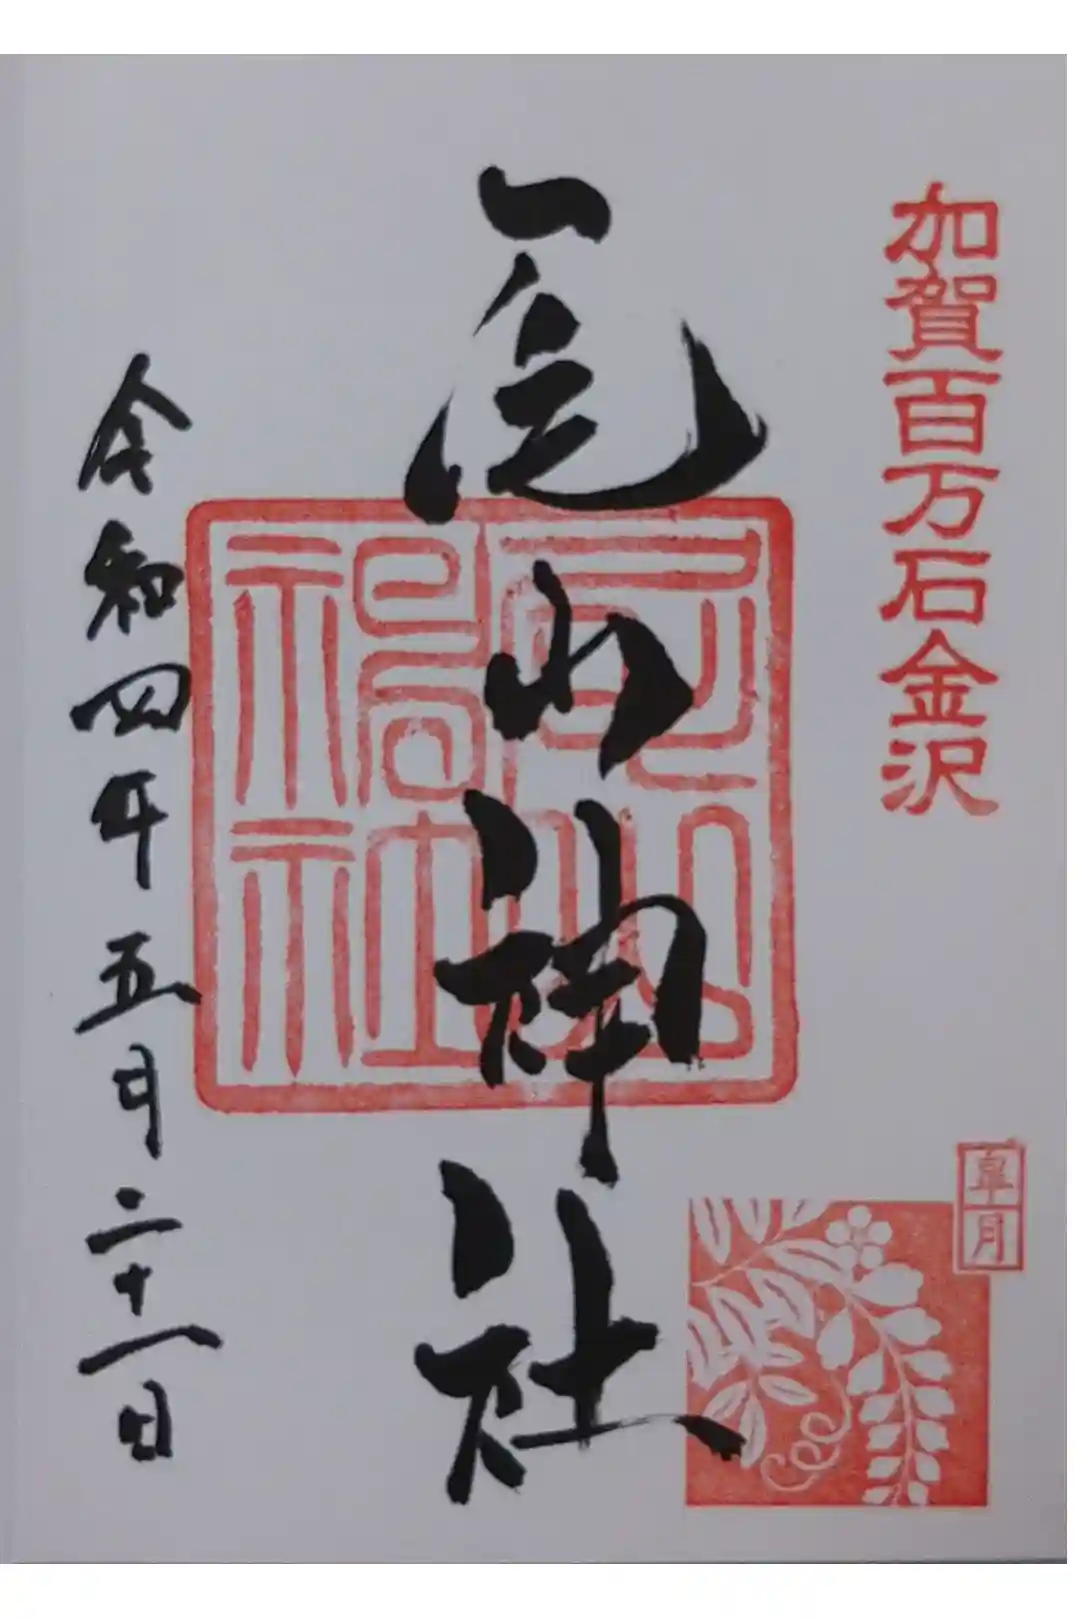 加賀百万石金沢
皐月
尾山神社
尾山神社
令和四年五月二十一日